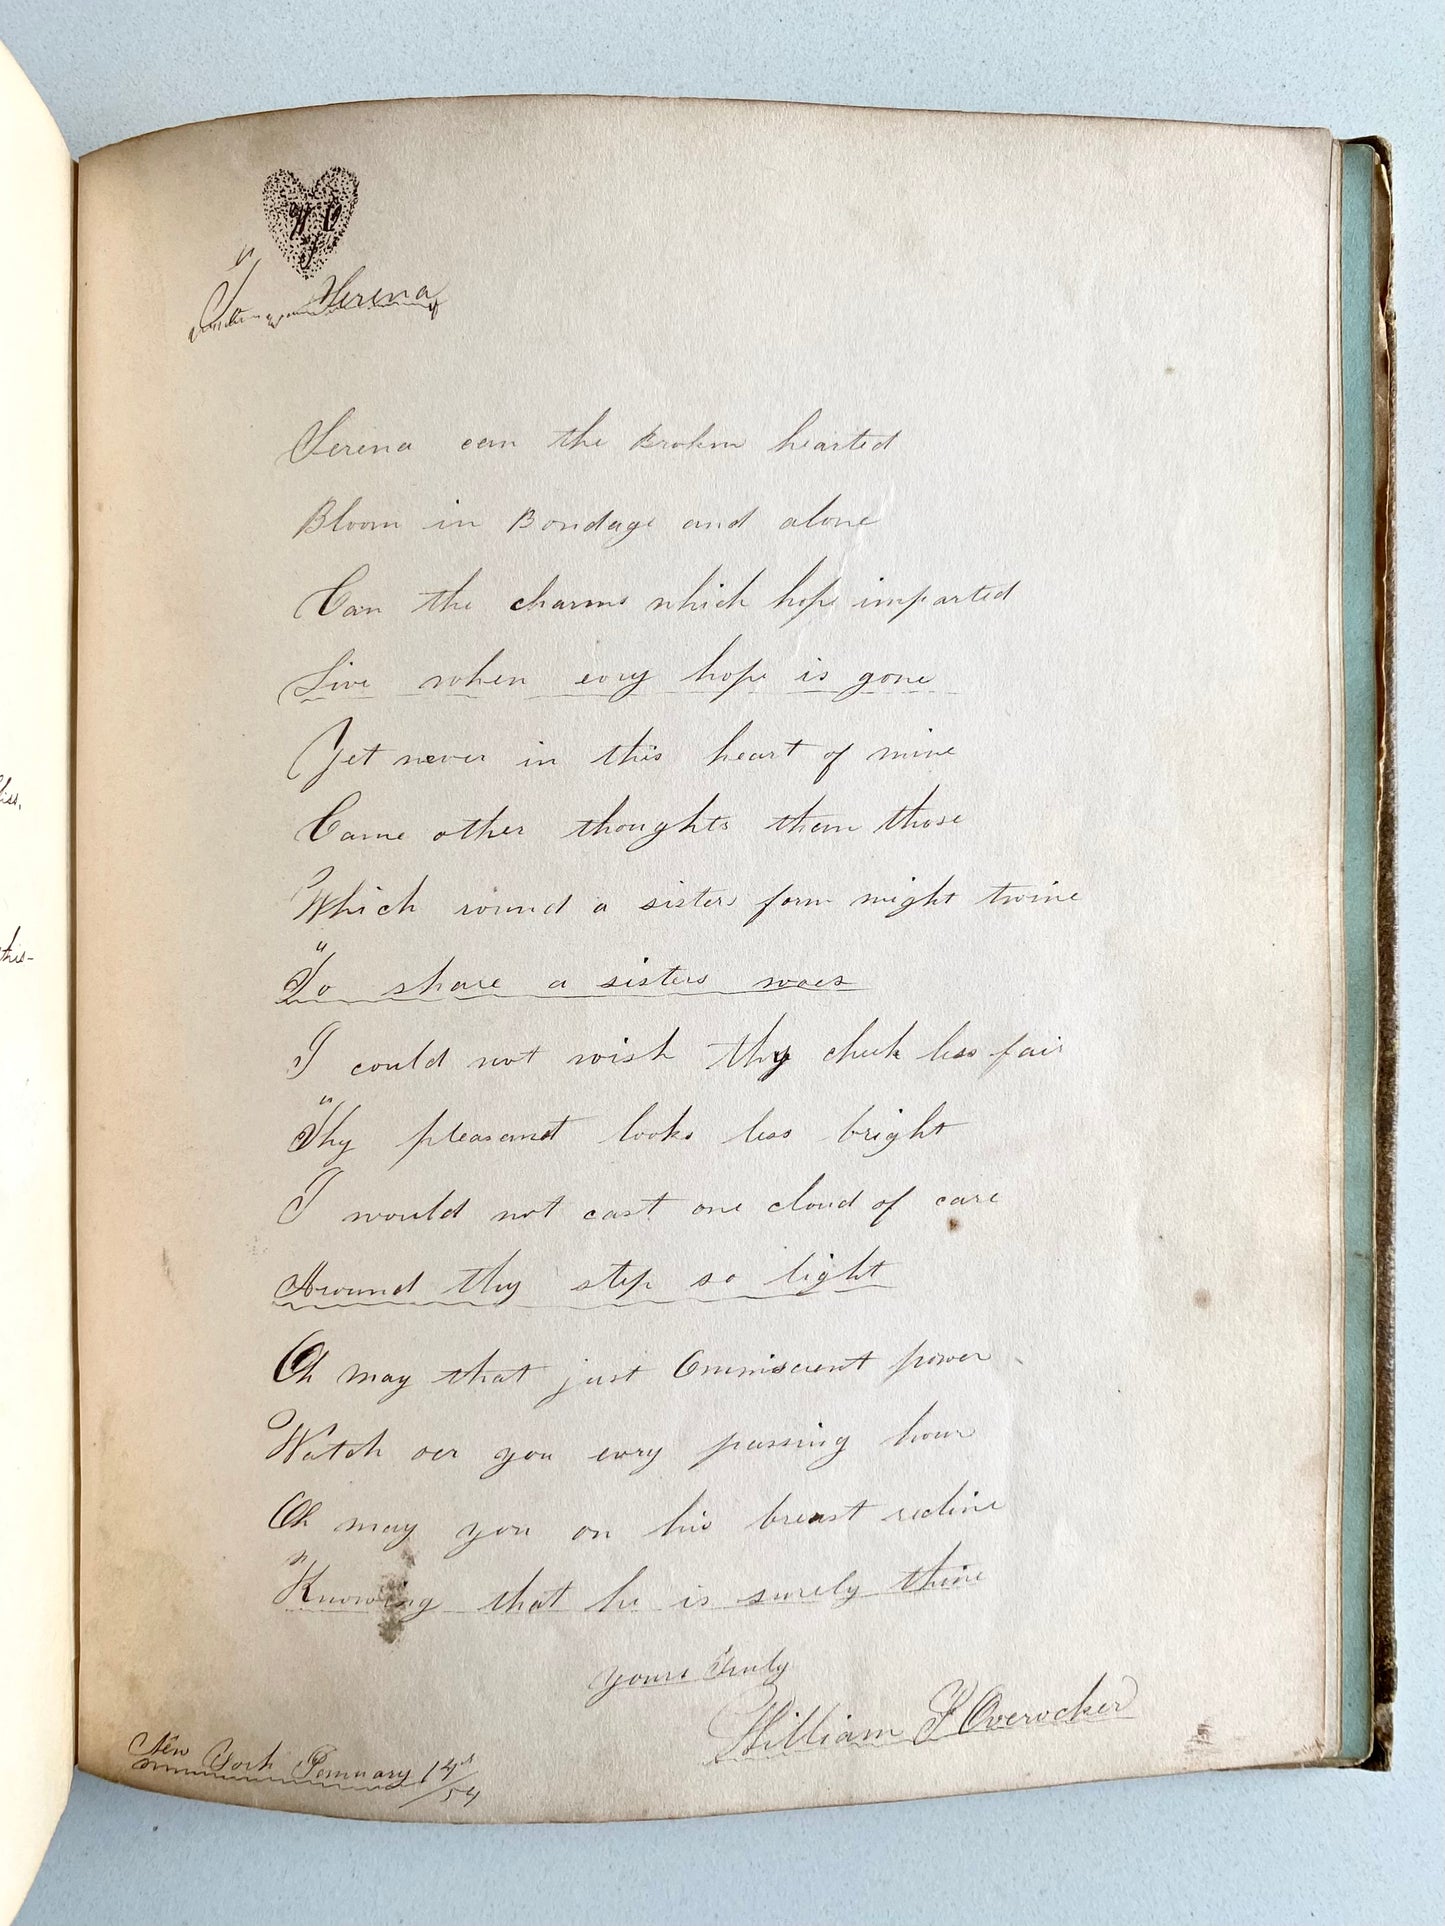 W O
J
To Serena
Serena can the Broken hearted
Bloom in Bondage and alone
Can the charms which hope imparted
Live when evry hope is gone
Yet never in this heart of mine
Came other thoughts than those
Which round a sisters form might twine
To share a sisters woes
I could not wish thy cheek less fair
Thy pleasant looks less bright
I would not cast one cloud of care
Around thy step so light
Oh may that just Omniscient power
Watch oer you evry passing hour
Oh may you on his breast recline
Knowing that he is surely thine
yours Truly
William J Overocker
New York January 14
/54
liss,
this-